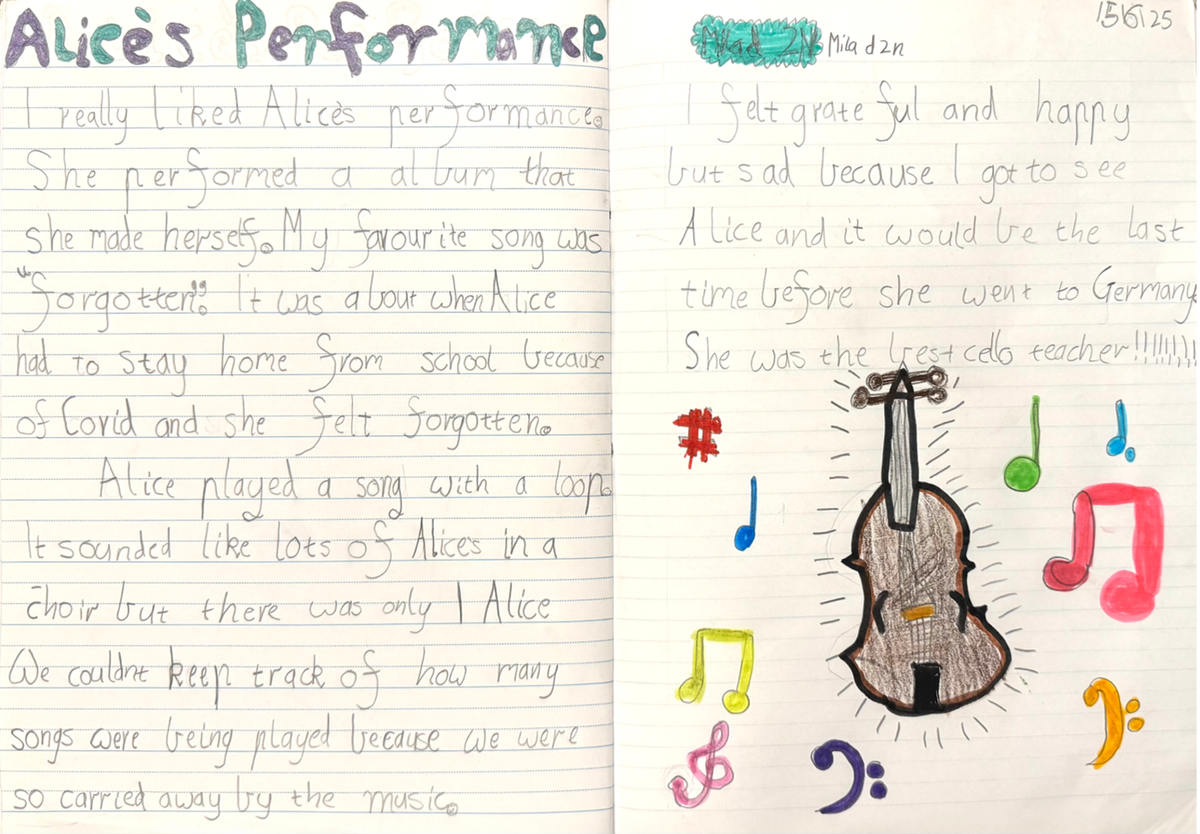 Alice's Performance
I really liked Alice's performance.
She performed a album that
she made herself. My favourite song was
"forgotten". It was about when Alice
had to stay home from school because
of Covid and she felt forgotten.
Alice played a song with a loop.
It sounded like lots of Alice's in a
choir but there was only 1 Alice
We couldn't keep track of how many
songs were being played because we were
so carried away by the music.
Milad 2N Milad 2n
I felt grateful and happy
but sad because I got to see
Alice and it would be the last
time before she went to Germany
She was the best cello teacher!!!!!!!!!